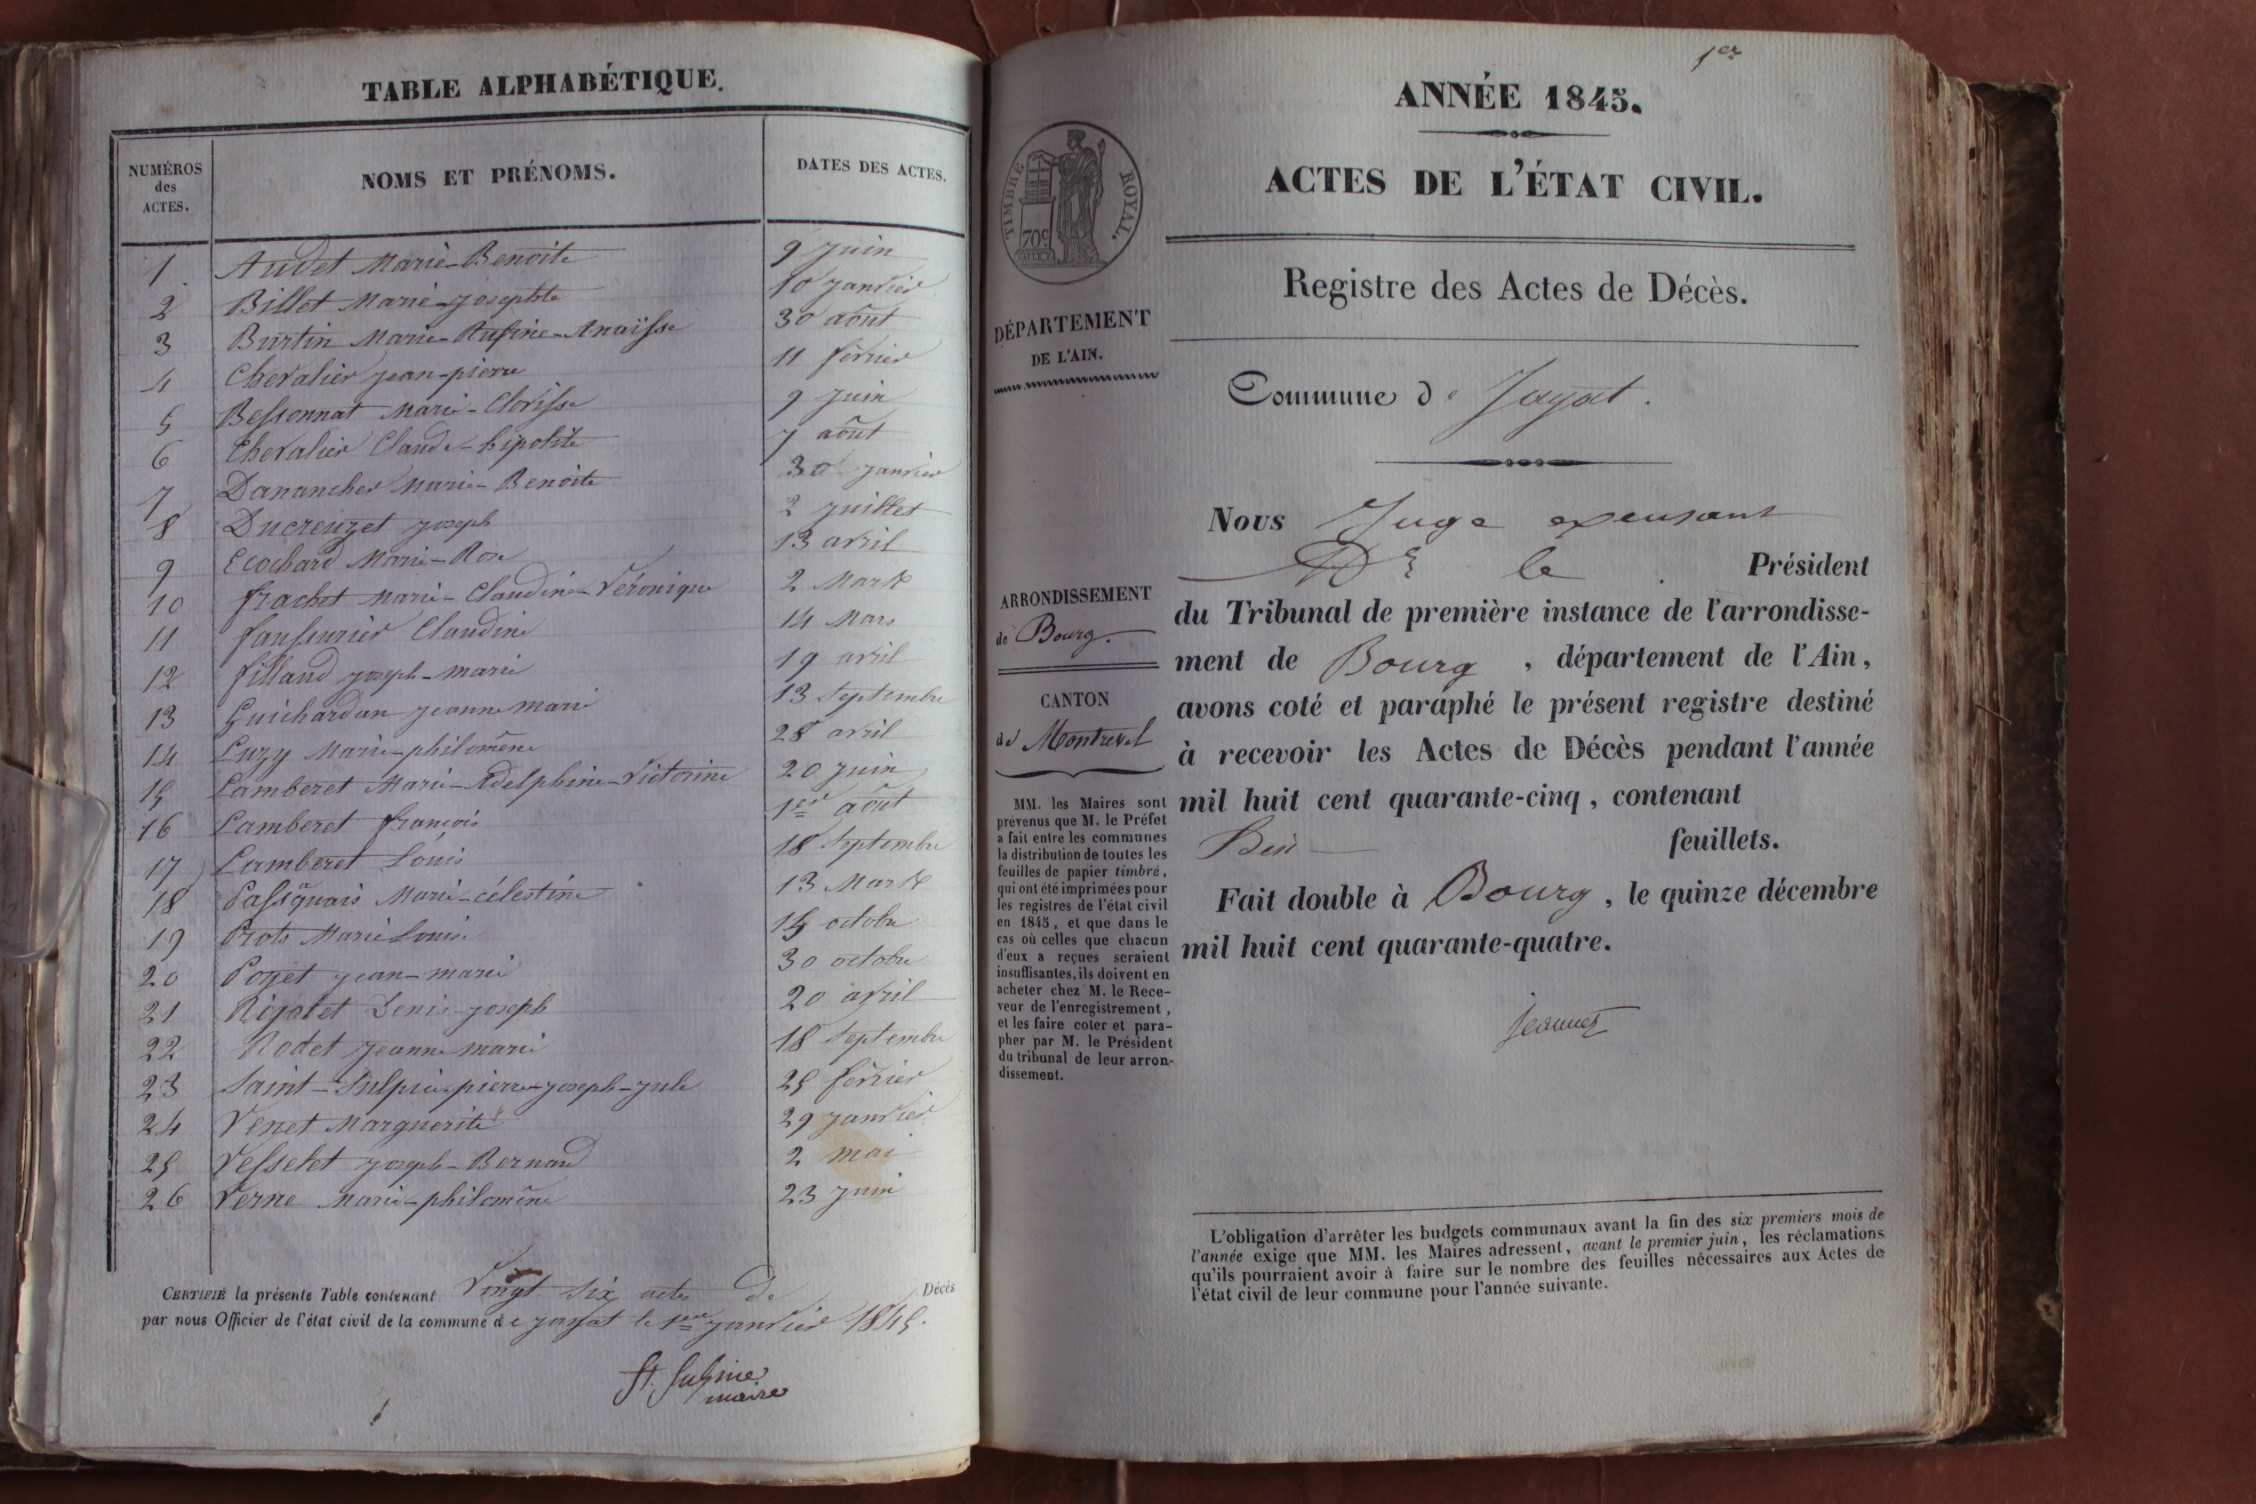 TABLE ALPHABÉTIQUE.
NUMÉROS des ACTES. NOMS ET PRÉNOMS. DATES DES ACTES.
1 Audet Marie-Benoite 9 juin
2 Billet Marie-josephte 10 janvier
3 Burtin Marie-Rufine-Anaïsse 30 août
4 Chevalier jean-pierre 11 février
5 Bessonnat Marie-Clorisse 9 juin
6 Chevalier Claude-hipolite 7 août
7 Danancher Marie-Benoite 30 janvier
8 Ducreuzet joseph 2 juillet
9 Ecochard Marie-Rose 13 avril
10 frachet Marie-Claudine-Véronique 2 Mars
11 Claudine 14 Mars
12 filland joseph-marie 19 avril
13 Guichardan jeanne marie 13 septembre
14 Luzy Marie-philomène 28 avril
15 Lamberet Marie-Adelphine-Victorine 20 juin
16 Lamberet françois 1er août
17 Lamberet Louis 18 septembre
18 Passquais Marie-célestine 13 Mars
19 Prots Marie Louise 15 octobre
20 Poyet jean-marie 30 octobre
21 Rigotet Denis-joseph 20 avril
22 Rodet jeanne marie 18 septembre
23 Saint-Sulpice-pierre-joseph-jule 25 février
24 Venet Marguerite 29 janvier
25 Vesselet joseph-Bernard 2 mai
26 Verne Marie-philomène 23 juin
CERTIFIÉ la présente Table contenant Vingt six actes de Décès
par nous Officier de l'état civil de la commune de jayat le 1er janvier 1845.
maire
1er
ANNÉE 1845.
ACTES DE L'ÉTAT CIVIL.
TIMBRE ROYAL.
70c
Registre des Actes de Décès.
DÉPARTEMENT
DE L'AIN.
Commune de Jayat.
Nous Juge exerçant
le Président
ARRONDISSEMENT
de Bourg.
du Tribunal de première instance de l'arrondisse-
ment de Bourg, département de l'Ain,
CANTON
de Montrevel
avons coté et paraphé le présent registre destiné
à recevoir les Actes de Décès pendant l'année
mil huit cent quarante-cinq, contenant
feuillets.
Fait double à Bourg, le quinze décembre
mil huit cent quarante-quatre.
Jeannez
MM. les Maires sont
prévenus que M. le Préfet
a fait entre les communes
la distribution de toutes les
feuilles de papier timbré,
qui ont été imprimées pour
les registres de l'état civil
en 1845, et que dans le
cas où celles que chacun
d'eux a reçues seraient
insuffisantes, ils doivent en
acheter chez M. le Rece-
veur de l'enregistrement,
et les faire coter et para-
pher par M. le Président
du tribunal de leur arron-
dissement.
L'obligation d'arrêter les budgets communaux avant la fin des six premiers mois de
l'année exige que MM. les Maires adressent, avant le premier juin, les réclamations
qu'ils pourraient avoir à faire sur le nombre des feuilles nécessaires aux Actes de
l'état civil de leur commune pour l'année suivante.